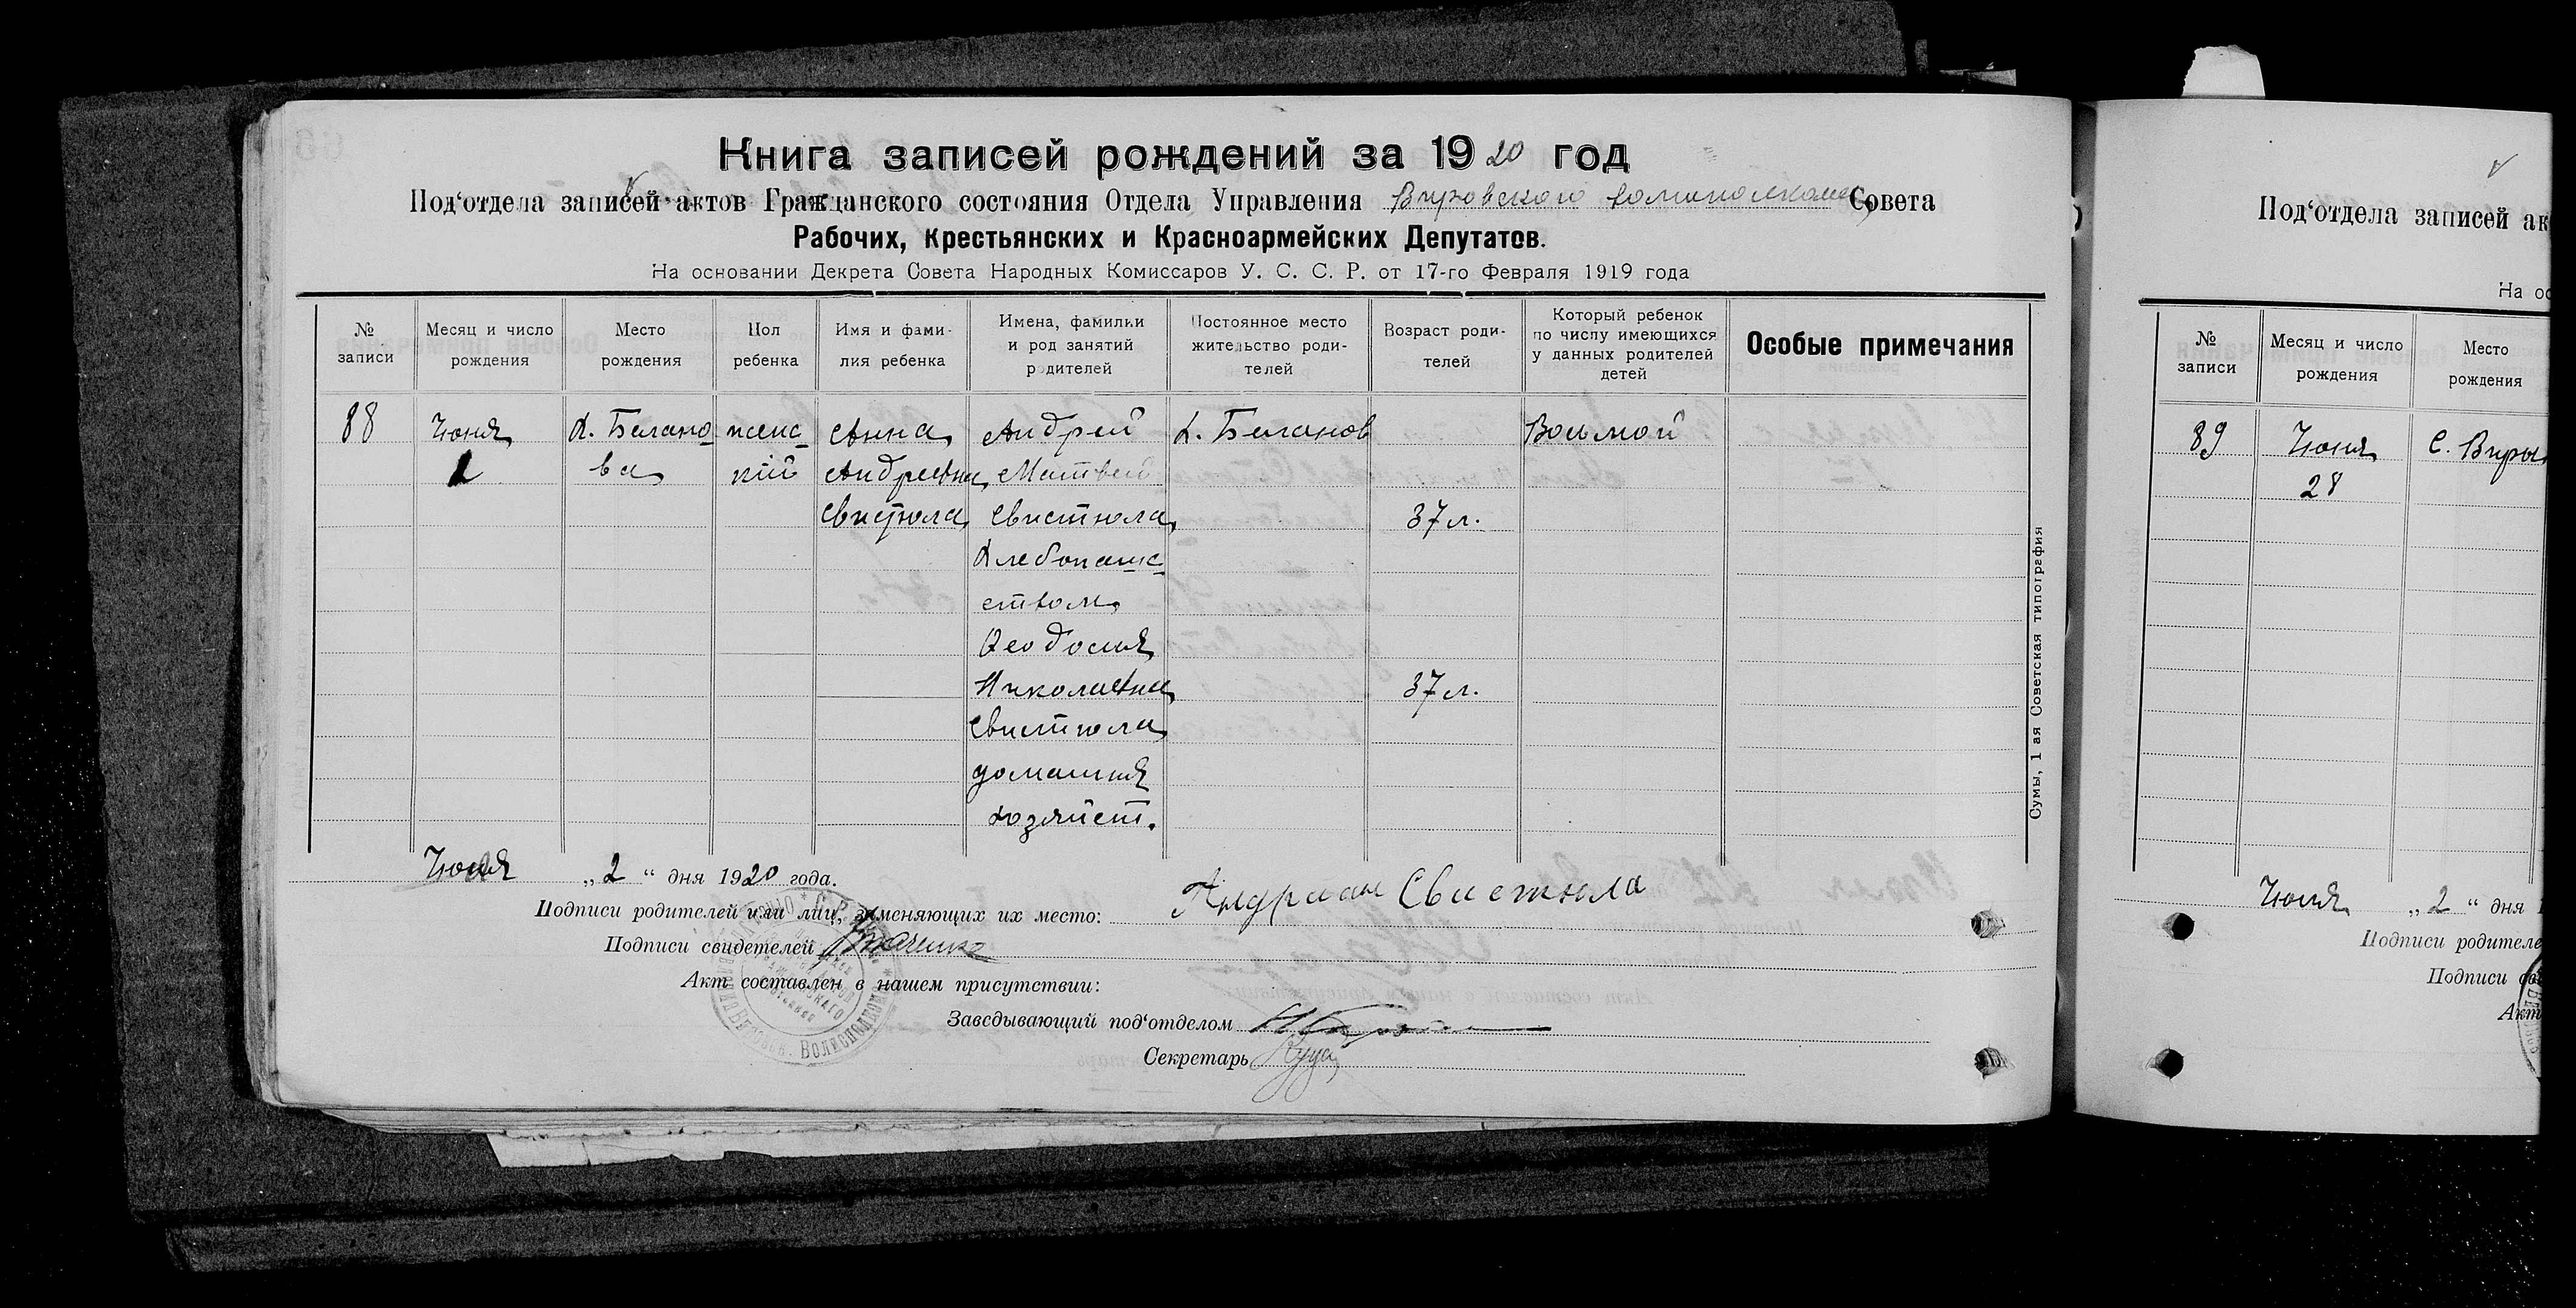 Книга записей рождений за 1920 год
Под‘отдела записей актов Гражданского состояния Отдела Управления Вировского волисполкома Совета
Рабочих, Крестьянских и Красноармейских Депутатов.
На основании Декрета Совета Народных Комиссаров У. С. С. Р. от 17-го Февраля 1919 года
№ записи
Месяц и число рождения
Место рождения
Пол ребенка
Имя и фамилия ребенка
Имена, фамилии и род занятий родителей
Постоянное место жительство родителей
Возраст родителей
Который ребенок по числу имеющихся у данных родителей детей
Особые примечания
88
Июня
Х. Белано
ва
женс
кий
Анна
Андреевна
Свистюла
Андрей
Матвей
Свистюла
Хлебопашс
ством
Феодосия
Николаевна
Свистюла
домашня
хозяйст.
Х. Беланов
37 л.
37 л.
Восьмой
Сумы, 1 ая Советская типография
Июля „2“ дня 1920 года.
Подписи родителей или лиц, заменяющих их место: Андриан Свистюла
Подписи свидетелей
Акт составлен в нашем присутствии:
Заведывающий под‘отделом
Секретарь
Под‘отдела записей ак
На ос
№ записи
Месяц и число рождения
Место рождения
89
Июня
28
С. Виры
Июля „2“ дня 1
Подписи родителе
Подписи св
Акт